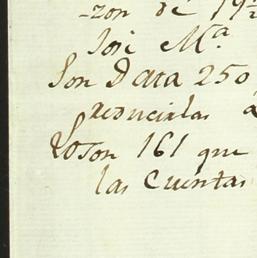 -zon de 19½
José Mª
Son Data 250
reducirlas a
Loson 161 que
las Cuentas